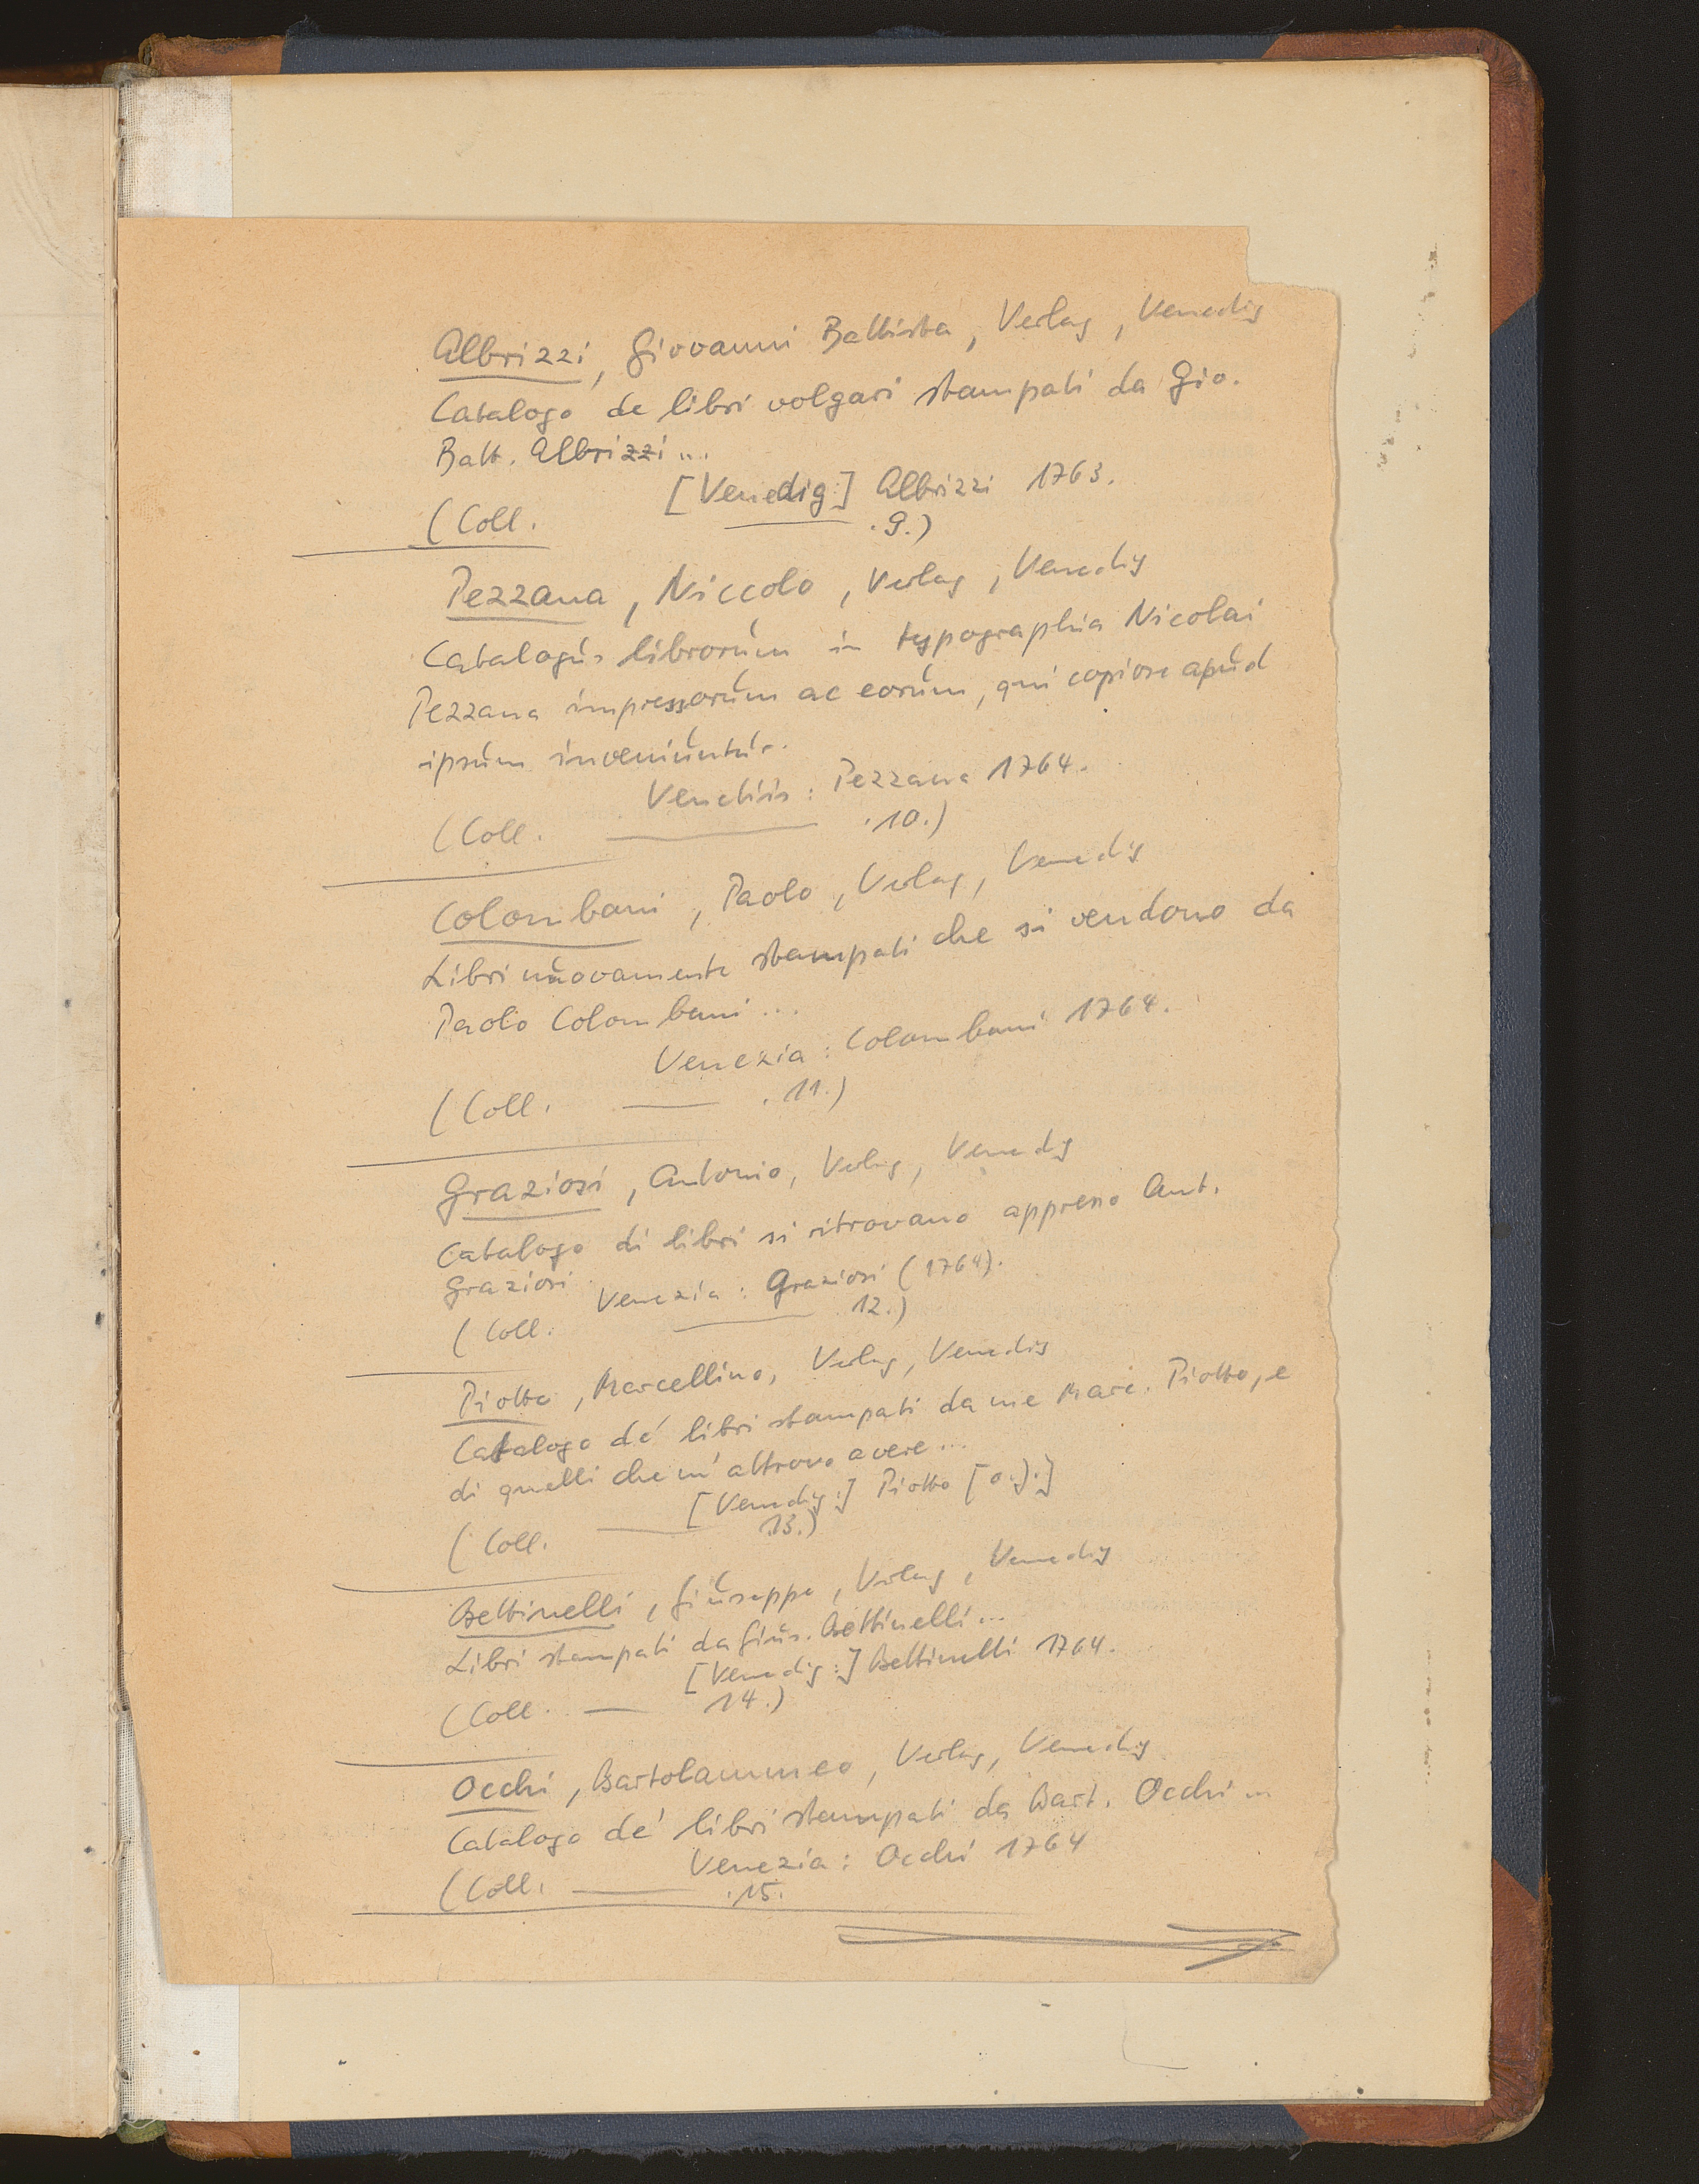 Albrizzi, Giovanni Battista, Verlag, Venedig
Catalogo de libri volgari stampati da Gio.
Batt. Albrizzi...
[Venedig:] Albrizzi 1763.
(Coll. —— .9.)
Pezzana, Niccolo, Verlag, Venedig
Catalogus librorum in typographia Nicolai
Pezzana impressorum ac eorum, qui copiose apud
ipsum inveniuntur.
Venetiis: Pezzana 1764.
(Coll. —— .10.)
Colombani, Paolo, Verlag, Venedig
Libri nuovamente stampati che si vendono da
Paolo Colombani...
Venezia: Colombani 1764.
(Coll. —— .11.)
Graziosi, Antonio, Verlag, Venedig
Catalogo di libri si ritrovano appresso Ant.
Graziosi.
Venezia: Graziosi (1764).
(Coll. —— 12.)
Piotto, Marcellino, Verlag, Venedig
Catalogo de' libri stampati da me Marc. Piotto, e
di quelli che m'attrovo avere...
[Venedig:] Piotto [o.J.]
(Coll. —— 13.)
Bettinelli, Giuseppe, Verlag, Venedig
Libri stampati da Gius. Bettinelli...
[Venedig:] Bettinelli 1764.
(Coll. — 14.)
Occhi, Bartolammeo, Verlag, Venedig
Catalogo de' libri stampati da Bart. Occhi...
Venezia: Occhi 1764
(Coll. —— .15.